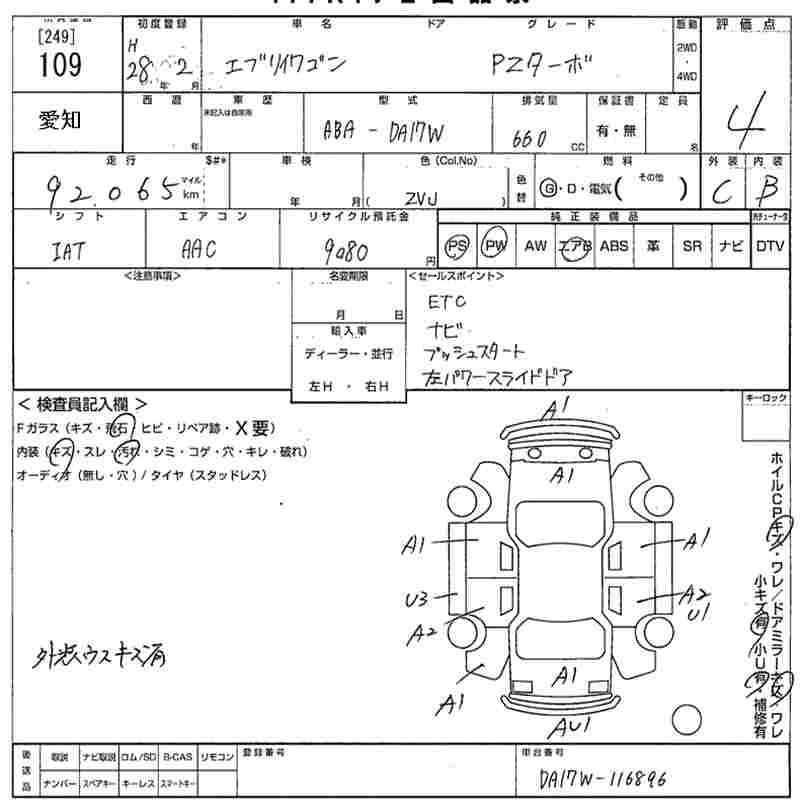 [249]
109
初度登録 車名 ドア グレード 駆動 評価点
H
28年 2月 エブリイワゴン PZターボ 2WD・4WD
4
愛知 西暦 年 車歴 未記入は自家用 型式 排気量 保証書 定員
ABA - DA17W 660 CC 有・無 名
走行 $#* 車検 色(Col,No) 燃料 外装 内装
92.065 マイル km 年 月( ZVJ ) 色替 G・D・電気( その他 ) C B
シフト エアコン リサイクル預託金 純正装備品
IAT AAC 9080円 PS PW AW エアB ABS 革 SR ナビ DTV
<注意事項> 名変期限 <セールスポイント>
月 日
ETC
輸入車
ナビ
ディーラー・並行
プッシュスタート
左H ・ 右H
左パワースライドドア
< 検査員記入欄 >
キーロック
Fガラス(キズ・飛石 ヒビ・リペア跡・X要)
内装(キズ・スレ・汚れ・シミ・コゲ・穴・キレ・破れ)
オーディオ(無し・穴)/タイヤ(スタッドレス)
A1
A1
A1 A1
U3 A2
U1
A2
A1 A1
AU1
外装ウスキズ有
ホイルCPキズ・ワレ/ドアミラーキズ/ワレ
小キズ有 小U有・補修有
後返品 取説 ナビ取説 ロム/SD B-CAS リモコン 登録番号 車台番号
ナンバー スペアキー キーレス スマートキー DA17W-116896